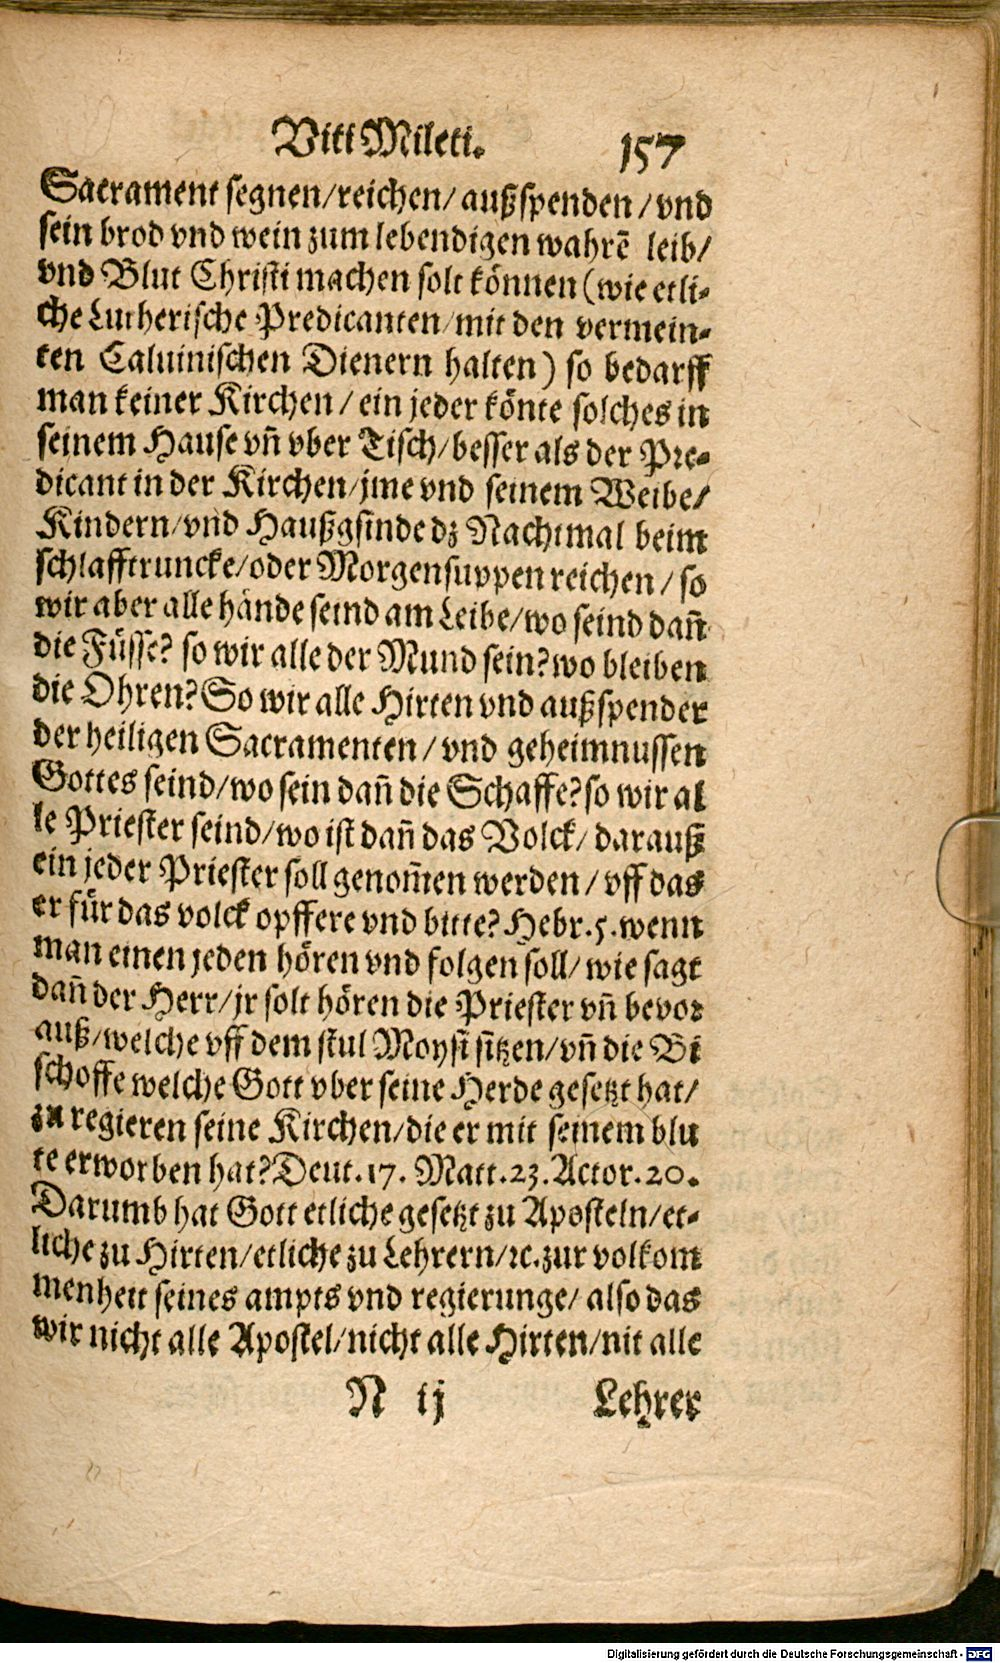 Viti Mileti. 157
Sacrament segnen/reichen/ außspenden/ vnd
sein brod vnd wein zum lebendigen wahrē leib/
vnd Blut Christi machen solt können (wie etli-
che Lutherische Predicanten/mit den vermein-
ten Caluinischen Dienern halten) so bedarff
man keiner Kirchen/ ein jeder könte solches in
seinem Hause vn̄ vber Tisch/besser als der Pre-
dicant in der Kirchen/jme vnd seinem Weibe/
Kindern/vnd Haußgsinde dz Nachtmal beim
schlafftruncke/oder Morgensuppen reichen/ so
wir aber alle hände seind am Leibe/wo seind dan̄
die Füsse? so wir alle der Mund sein? wo bleiben
die Ohren? So wir alle Hirten vnd außspender
der heiligen Sacramenten/ vnd geheimnussen
Gottes seind/wo sein dan̄ die Schaffe? so wir al
le Priester seind/wo ist dan̄ das Volck/ darauß
ein jeder Priester soll genom̄en werden/ vff das
er für das volck opffere vnd bitte? Hebr. 5. wenn
man einen jeden hören vnd folgen soll/ wie sagt
dan̄ der Herr/jr solt hören die Priester vn̄ bevor
auß/welche vff dem stul Moysi sitzen/vn̄ die Bi
schoffe welche Gott vber seine Herde gesetzt hat/
zu regieren seine Kirchen/die er mit seinem blu
te erworben hat? Deut. 17. Matt. 23. Actor. 20.
Darumb hat Gott etliche gesetzt zu Aposteln/et-
liche zu Hirten/etliche zu Lehrern/ꝛc. zur volkom
menheit seines ampts vnd regierunge/ also das
wir nicht alle Apostel/nicht alle Hirten/nit alle
N ij Lehrer
Digitalisierung gefördert durch die Deutsche Forschungsgemeinschaft - DFG